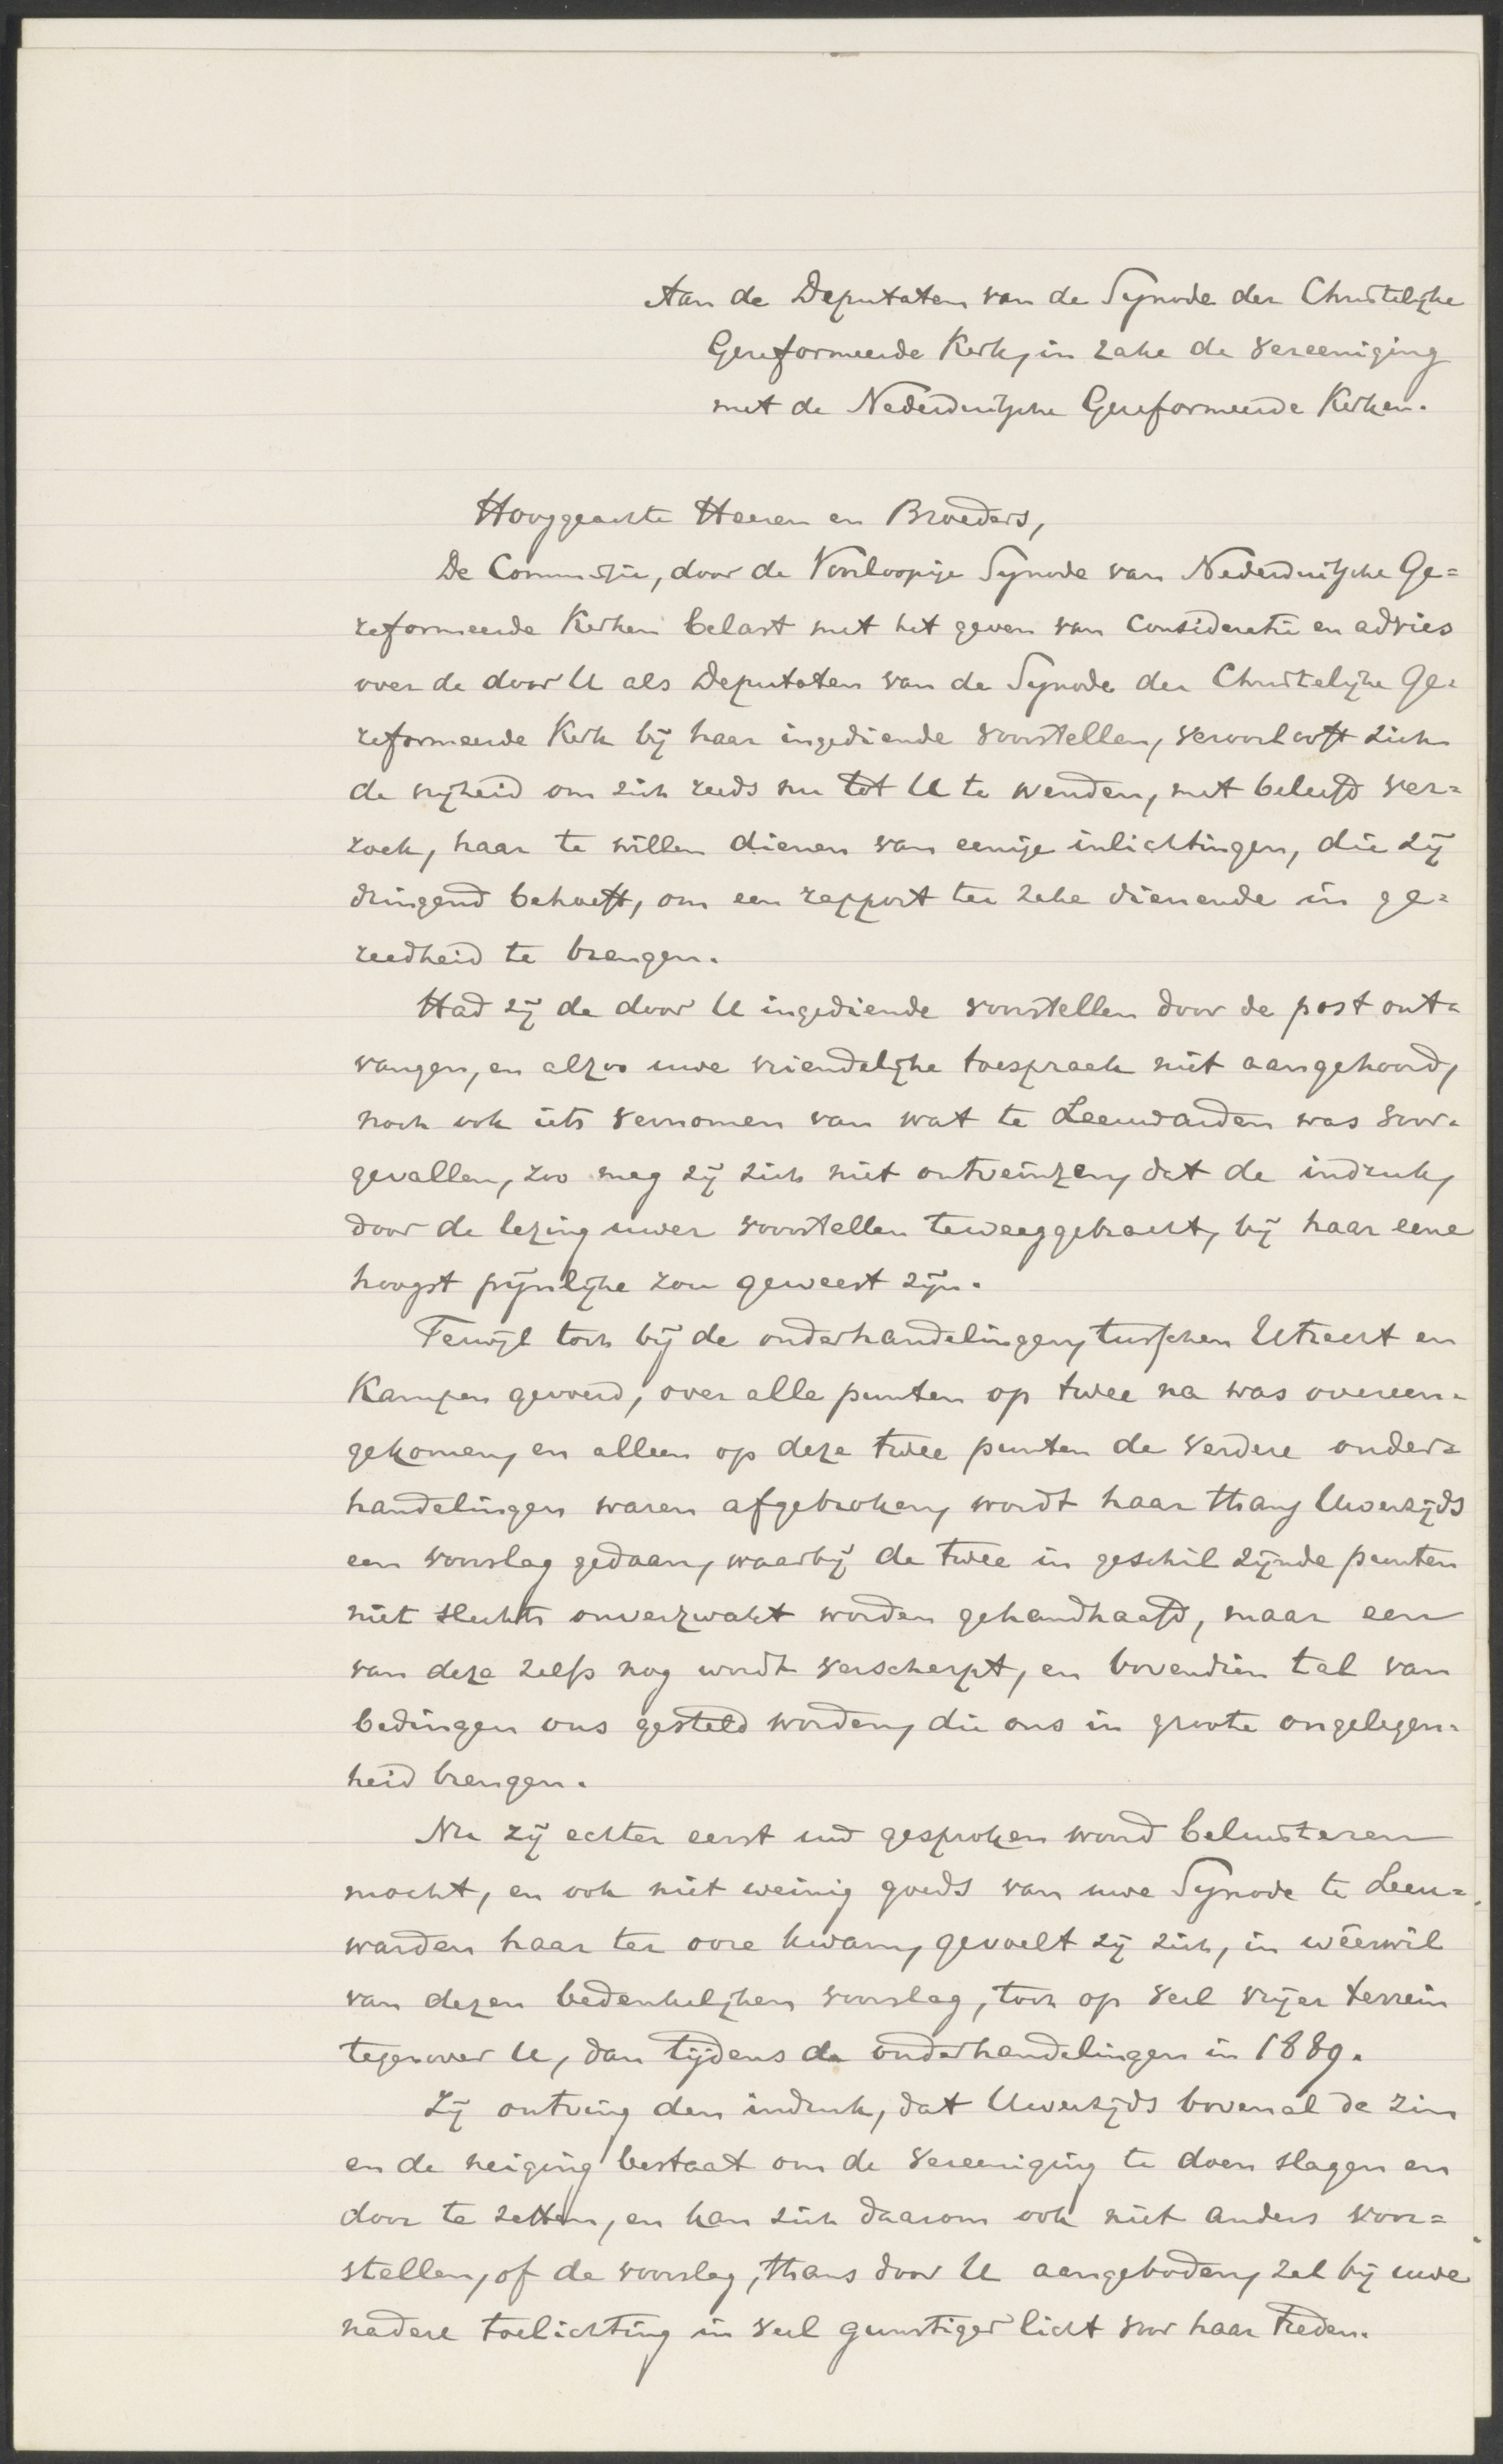 Aan de Deputaten van de Synode der Christelijke
Gereformeerde Kerk, in zake de vereeniging
met de Nederduitsche Gereformeerde Kerken.
Hooggeachte Heeren en Broeders,
De Commissie, door de Voorloopige Synode van Nederduitsche Ge=
reformeerde Kerken belast met het geven van consideratie en advies
over de door U als Deputaten van de Synode der Christelijke Ge=
reformeerde Kerk bij haar ingediende voorstellen, veroorlooft zich
de vrijheid om zich reeds nu tot U te wenden, met beleefd ver=
zoek, haar te willen dienen van eenige inlichtingen, die zij
dringend behoeft, om een rapport ter zake dienende in ge=
reedheid te brengen.
Had zij de door U ingediende voorstellen door de post ont=
vangen, en alzoo uwe vriendelijke toespraak niet aangehoord,
noch ook iets vernomen van wat te Leeuwarden was voor=
gevallen, zoo mag zij zich niet ontveinzen, dat de indruk,
door de lezing uwer voorstellen teweeggebracht, bij haar eene
hoogst pijnlijke zou geweest zijn.
Terwijl toch bij de onderhandelingen, tusschen Utrecht en
Kampen gevoerd, over alle punten op twee na was overeen=
gekomen, en alleen op deze twee punten de verdere onder=
handelingen waren afgebroken, wordt haar thans Uwerzijds
een voorslag gedaan, waarbij de twee in geschil zijnde punten
niet slechts onverzwakt worden gehandhaafd, maar een
van deze zelfs nog wordt verscherpt, en bovendien tal van
bedingen ons gesteld worden, die ons in groote ongelegen=
heid brengen.
Nu zij echter eerst uw gesproken woord beluisteren
mocht, en ook niet weinig goeds van uwe Synode te Leeu=
warden haar ter oore kwam, gevoelt zij zich, in wéerwil
van dezen bedenkelijken voorslag, toch op veel vrijer terrein
tegenover U, dan tijdens de onderhandelingen in 1889.
Zij ontving den indruk, dat Uwerzijds bovenal de zin
en de neiging bestaat om de vereeniging te doen slagen en
door te zetten, en kan zich daarom ook niet anders voor=
stellen, of de voorslag, thans door U aangeboden, zal bij uwe
nadere toelichting in veel gunstiger licht voor haar treden.